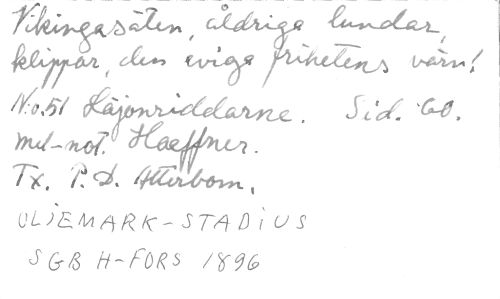 Vikingasäten, åldriga lundar,
klippor, den eviga frihetens värn!
N:o. 51 Lejonriddarne. Sid. 60.
mel-not. Haeffner.
Tx. P. D. Atterbom.
OLJEMARK-STADIUS
SGB H-FORS 1896